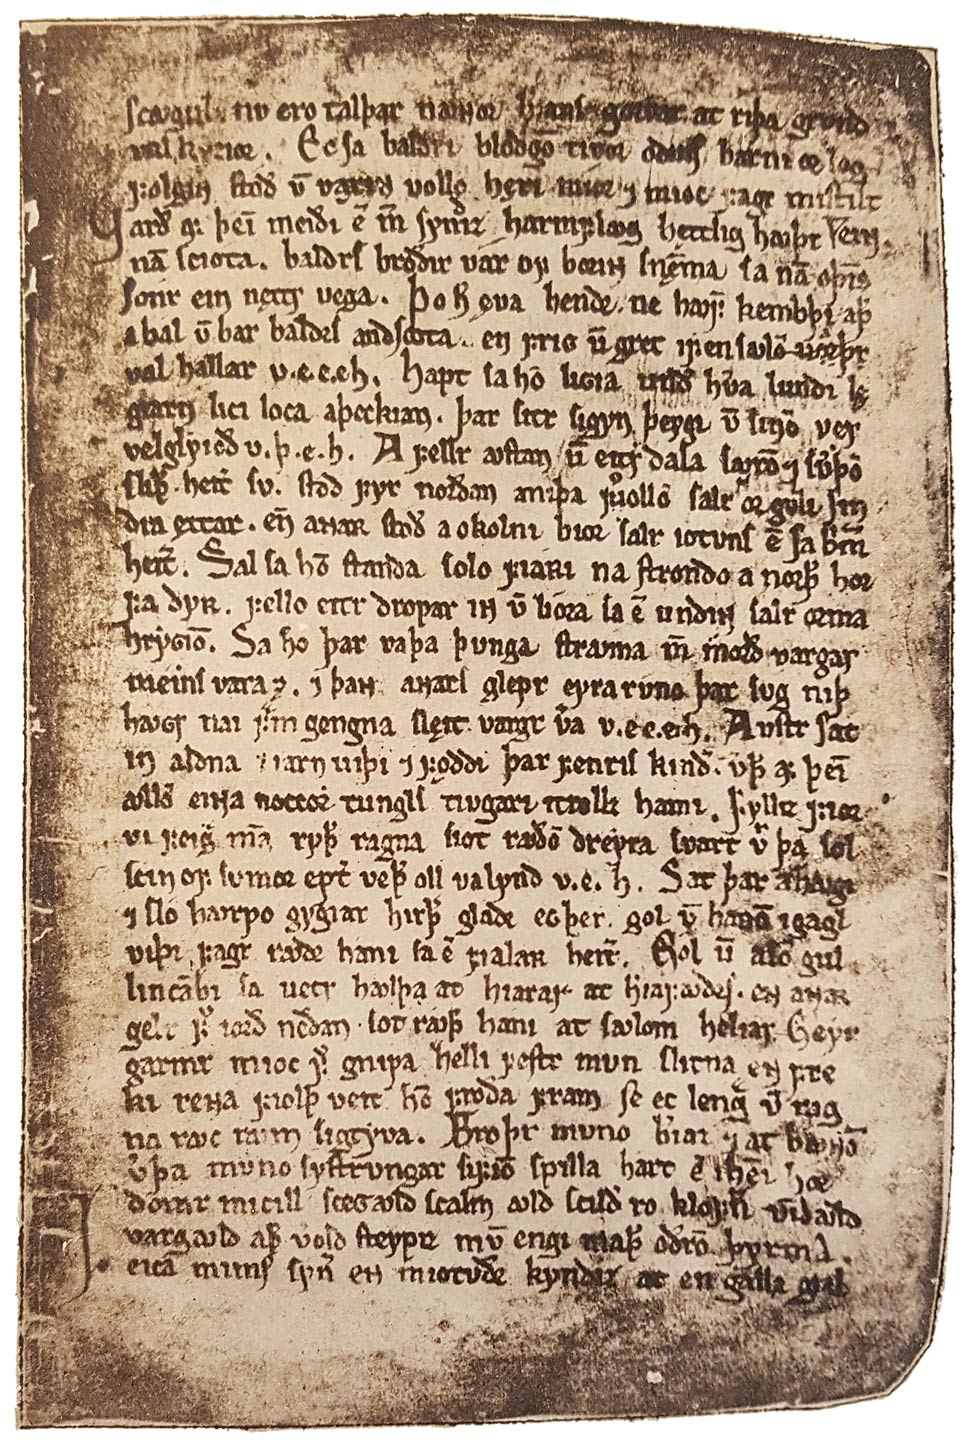 scogul. nv ero talþar nauɴor herians gorvar at riþa grvnd
valkyrior. Ec sa baldri blóðgō tivor oðinſ barni ør lǫg
folgin stóð v̄ vaxin vollō hęri mior ⁊ mioc fagr miſtilt
aɴ. Varð af þei meiði ē m̄ syndiz harmflꜹg hęttlig hꜹþr
nā sciota. baldrſ bróðir var of boriɴ snēma ſa nā oþinſ
sonr ein nęttr vega. Þo h̄ ęva hendr ne hꜹfuþ kembþi aþ̄
a bal v̄ bar baldrſ andscota. en frig v̄ grét ifensꜹlō
val hallar v.e.e.eh. Hapt sa hō ligia undꝛ hṽa lundi lę
giarn lici loca aþeckian. þar sitr sigyn þeygi v̄ sinō ver
velglyioð v.þ.e.h. A fellr ꜹstan v̄ eitrdala sꜹxō ⁊ sṽþō
sliþ̄ heitꝛ sv. stóð fyr norðan aniþa fiollō salr ór gulli sin
dra ęttar. en̄ aɴar stóð a okolni bior salr iotvns ē sa brim̄
heitꝛ. Sal sa hō standa solo fiarri na strondo a norþ̄ hor
fa dyʀ. fello eitr dropar iɴ v̄ lióra sa ē undiɴ salr orma
hryɢiō. Sa hō þar vaþa þunga strꜹma m̄ morð vargar
meinſ vara ⁊. ⁊ þaɴ aɴarſ glepr eyra rúno þar sug niþ
hꜹɢr nai fm̄ gengna sleit vargr vā v.e.e.eh. Austr sat
in aldna iarnviþi ⁊ foddi þar fenriſ kindꝛ. vþ̄ af þei
ollō eiɴa noccoꝛ tunglſ tiugari itrollz hami. Fylliz fior
vi feigꝛ m̄a ryþ̄ ragna siot rꜹðō dreyra svart v̄ þa sól
scin of sumor eptꝛ veþ̄ oll valynd v.e.h. Sat þar ahꜹgi
⁊ sló hꜹrpo gygiar hirþ̄ glaðr ecþer. gól v̄ hanō igagl
viþi fagr rꜹðr hani sa ē fialaʀ heitꝛ. Gól v̄ asō gul
lincābi sa uecr hꜹlþa at hiarar at heriafꜹdrſ. en aɴar
gelr fꝛ iorð neðan sót rꜹþ̄ hani at sꜹlom heliar. Geyr
garmr mioc fꝛ gnipa helli feſtr mun slitna en fre
ki reɴa fiolþ̄ veit hō frǿða fram sé ec lengꝛ v̄ rag
na rꜹc rꜹm sigtýva. Brǿþr muno beriaz ⁊ at bꜹnō
verþa muno systrungar sifiō spilla hart ē iheīi hór
dómr micill sceggꜹld scalm ꜹld scildꝛ ro klofnꝛ vīdꜹld
vargꜹld aþ̄ verold steypiz mū engi maþ̄ oðrō þyrma.
Leica mims syñ en miotvðr kyndiz at en galla gial